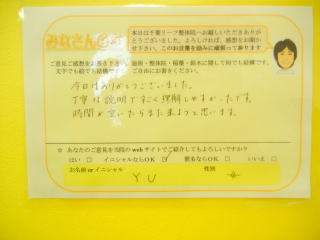 みなさんの声
本日は千葉リーフ整体院へお越しいただきありが
とうございました。よろしければ、感想をお聞か
せ下さい。このお言葉を励みに頑張って参ります
ご意見ご感想をお書きください。施術・整体院・稲葉・鈴木に関して何でも結構です。
文字でも絵でも結構です ご自由にお書きください。
今日はありがとうございました。
丁寧な説明ですごく理解しやすかったです。
時間が空いたらまた来ようと思います。
☆ あなたのご意見を当院の web サイトでご紹介してもよろしいですか？
はい □ イニシャルならOK ☑ 匿名ならOK □ いいえ □
お名前 or イニシャル 性別
Y U